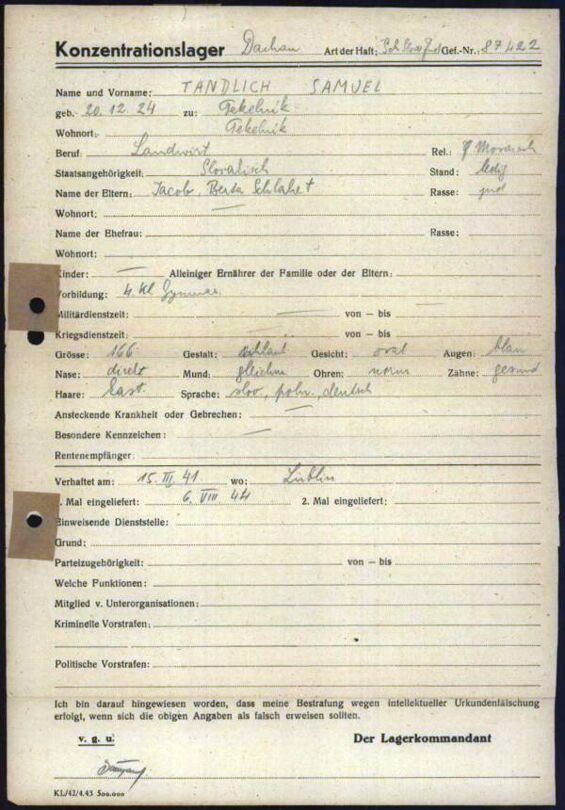 Konzentrationslager Dachau Art der Haft: Gef.-Nr.: 87422
Name und Vorname: TANDLICH SAMUEL
geb. 20.12.24 zu:
Wohnort:
Beruf: Landwirt Rel.:
Staatsangehörigkeit: Slovakisch Stand: ledig
Name der Eltern: Jacob, Berta Rasse: jud
Wohnort: —
Name der Ehefrau: Rasse:
Wohnort:
Kinder: — Alleiniger Ernährer der Familie oder der Eltern: —
Vorbildung: 4. Kl
Militärdienstzeit: — von – bis —
Kriegsdienstzeit: — von – bis —
Grösse: 166 Gestalt: schlank Gesicht: oval Augen: blau
Nase: direkt Mund: Ohren: norm Zähne: gesund
Haare: kast. Sprache: slov, poln, deutsch
Ansteckende Krankheit oder Gebrechen: —
Besondere Kennzeichen: —
Rentenempfänger:
Verhaftet am: 15. III. 41 wo: Lublin
1. Mal eingeliefert: 6. VIII 44 2. Mal eingeliefert:
Einweisende Dienststelle:
Grund:
Parteizugehörigkeit: von – bis
Welche Funktionen:
Mitglied v. Unterorganisationen:
Kriminelle Vorstrafen:
Politische Vorstrafen:
Ich bin darauf hingewiesen worden, dass meine Bestrafung wegen intellektueller Urkundenfälschung
erfolgt, wenn sich die obigen Angaben als falsch erweisen sollten.
v. g. u. Der Lagerkommandant
KL/42/4.43 500.000